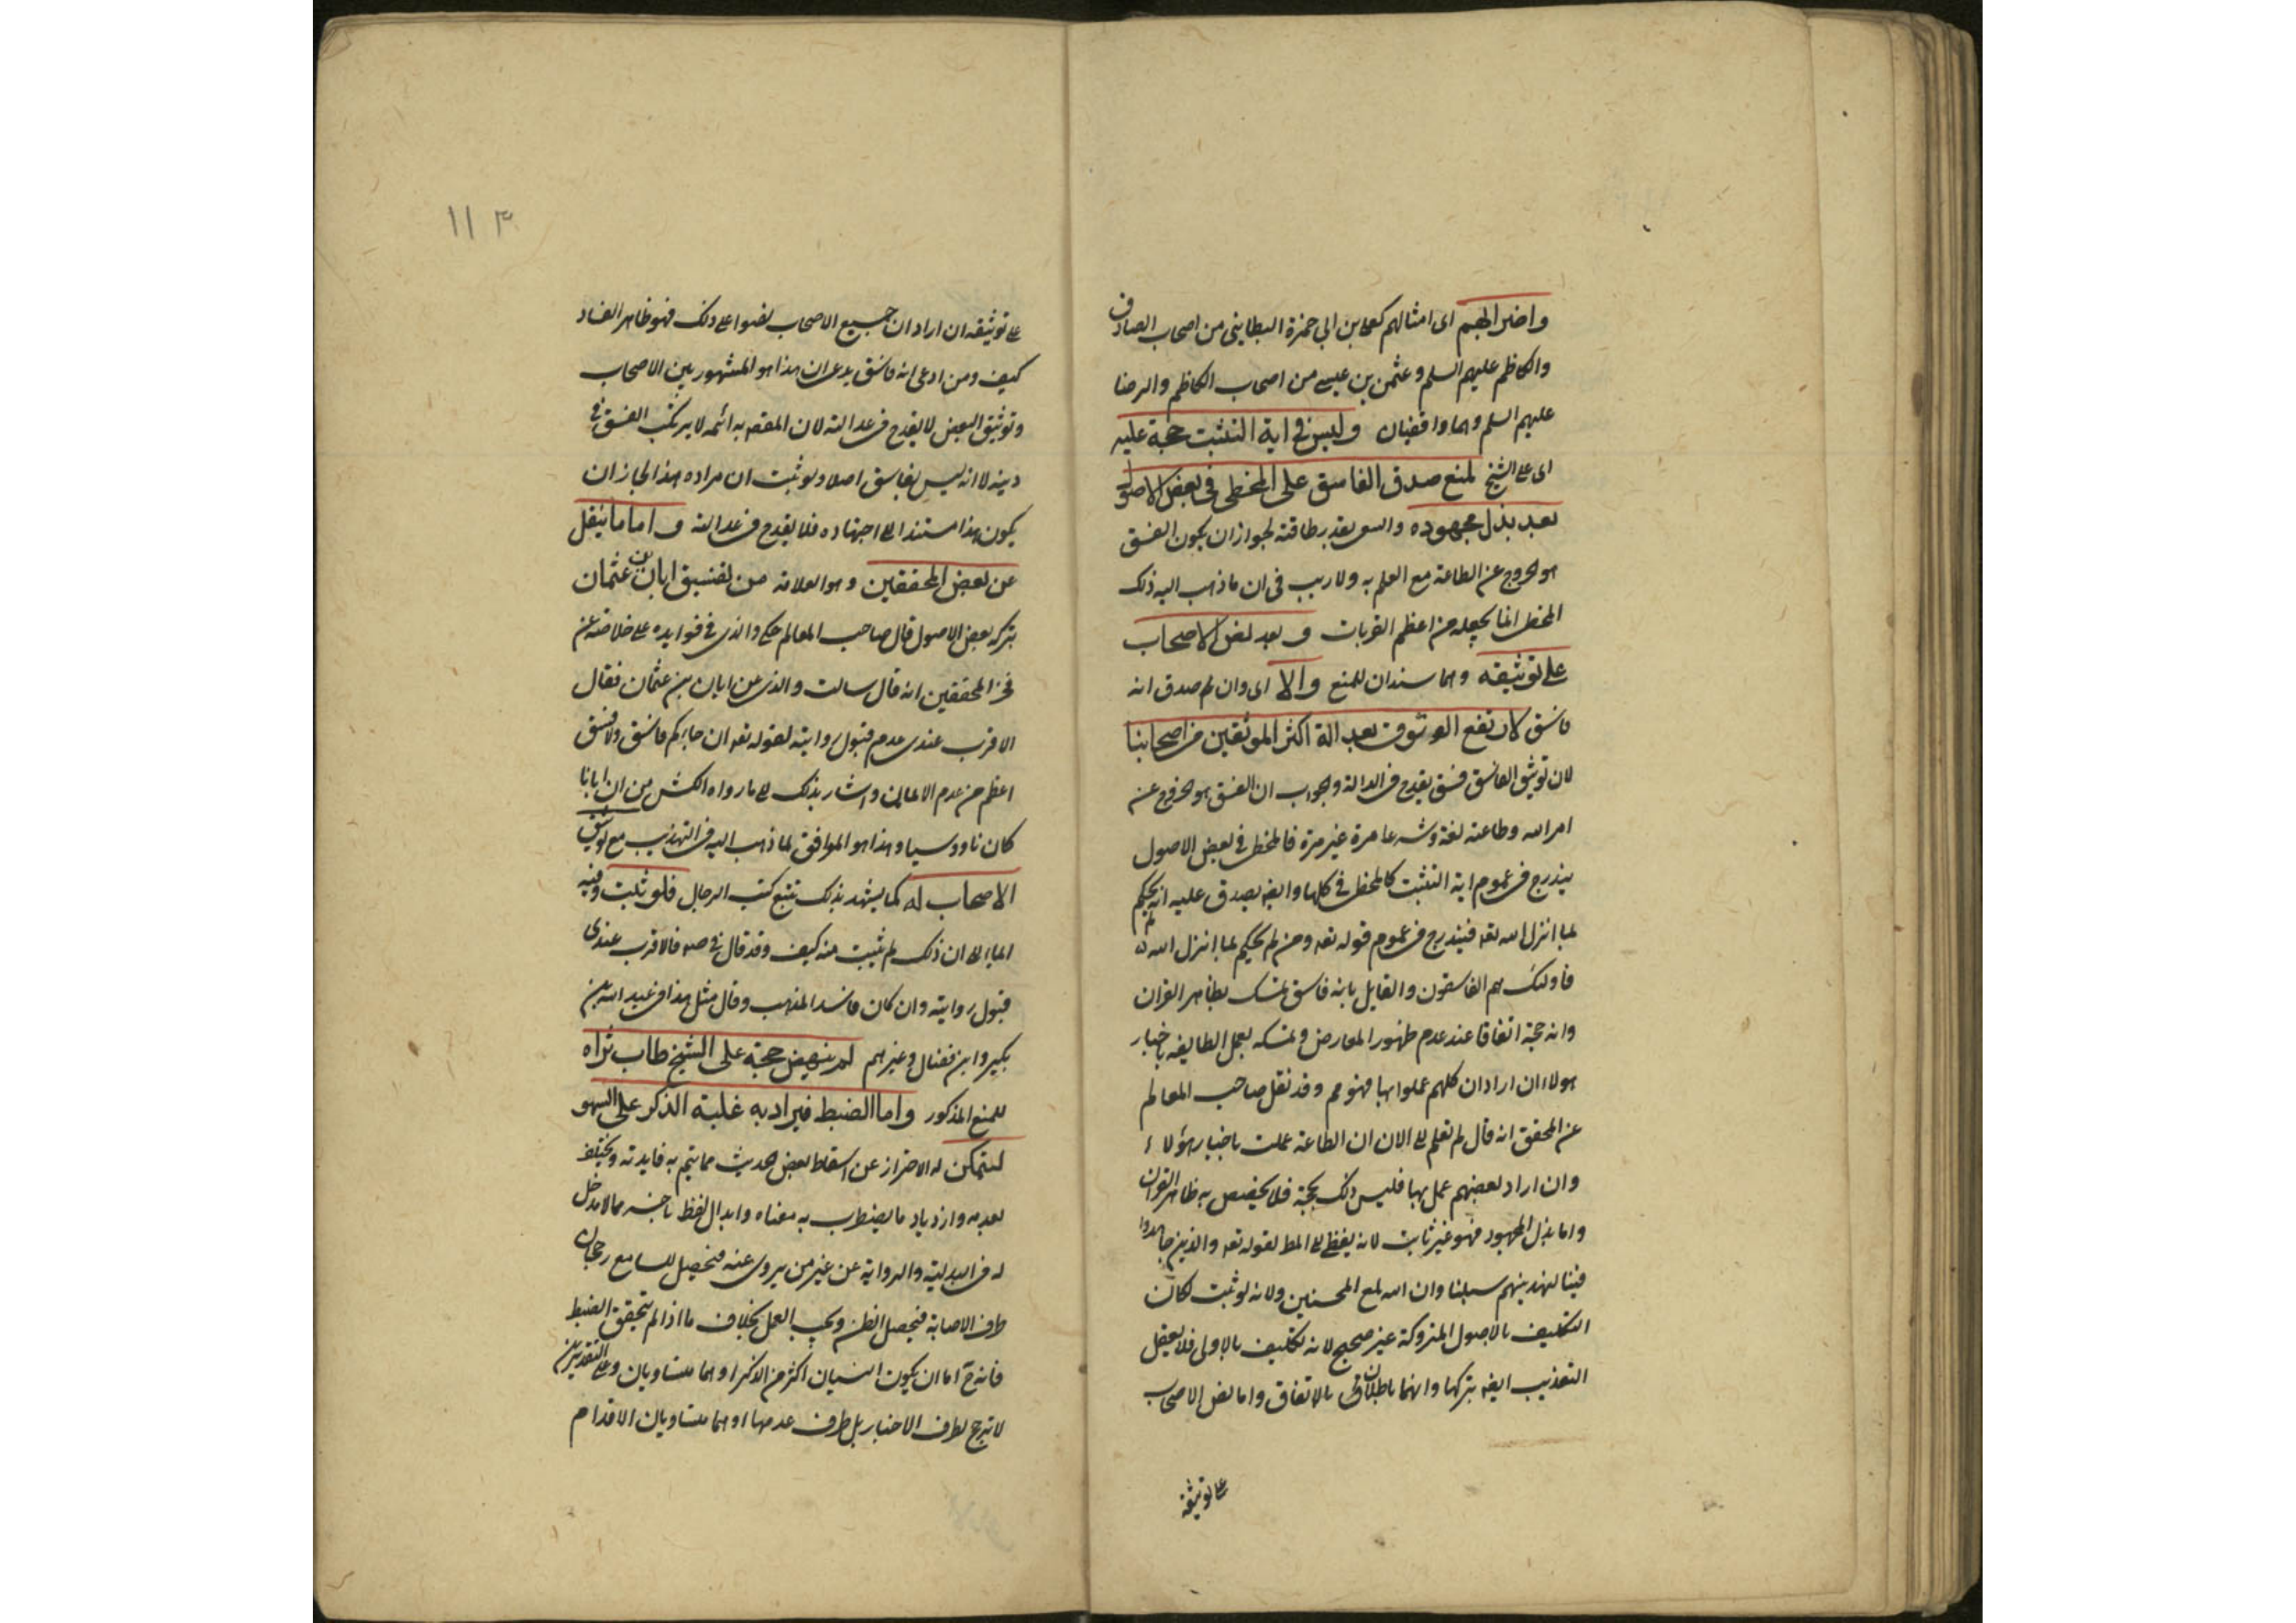 واضرابهم اى امثالهم كعلى بن ابي حمزة البطايني من اصحاب الصادق
والكاظم عليهم السلم وعثمن بن عيسى من اصحاب الكاظم والرضا
عليهم السلم وهما واقفيان وليس في اية التثبت حجة عليه
اى على الشيخ لمنع صدق الفاسق على المخطى في بعض الاصول
بعد بذل مجهوده والسعى بقدر طاقته لجواز ان يكون الفسق
هو الخروج عن الطاعة مع العلم به ولا ريب فى ان ما ذهب اليه ذلك
المخطى انما يجعله من اعظم القربات و بعد نص الاصحاب
على توثيقه وهما سندان للمنع والا اى وان لم صدق انه
فاسق لارتفع الوثوق بعدالة اكثر الموثقين من اصحابنا
لان توثيق الفاسق فسق يقدح فى العدالة والجواب ان الفسق هو الخروج عن
امر الله وطاعته لغة وشرعا مرة غير مرة فالمخطى في بعض الاصول
يندرج فى عموم اية التثبت كالمخطى في كلها وايضه يصدق عليه انه لم يحكم
بما انزل الله تعه فيندرج فى عموم قوله تعه ومن لم يحكم بما انزل الله
فاولئك هم الفاسقون والقايل بانه فاسق تمسك بظاهر القران
وانه حجة اتفاقا عند عدم ظهور المعارض وتمسكه بعمل الطايفه باخبار
هولاء ان اراد ان كلهم عملوا بها فهو مم وقد نقل صاحب المعالم
عن المحقق انه قال لم نعلم الى الان ان الطاعة عملت باخبار هؤلاء
وان اراد بعضهم عمل بها فليس ذلك بحجة فلا يخصص به ظاهر القران
واما بذل المجهود فهو غير ثابت لانه يفضى الى المط لقوله تعه والذين جاهدوا
فينا لنهدينهم سبلنا وان الله لمع المحسنين ولانه لو ثبت لكان
التكليف بالاصول المتروكة غير صحيح لانه تكليف بالاولى فلا يعقل
التعذيب ايضه بتركها وانهما باطلان بالاتفاق واما نص الاصحاب
على توثيقه
١١٣
على توثيقه ان اراد ان جميع الاصحاب نصوا على ذلك فهو ظاهر الفساد
كيف ومن ادعى انه فاسق يدعى ان هذا هو المشهور بين الاصحاب
وتوثيق البعض لا يقدح فى عدالته لان المقصه به انه لا يرتكب الفسق في
دينه لا انه ليس بفاسق اصلا ولو ثبت ان مراده هذا لجاز ان
يكون هذا مستندا الى اجتهاده فلا يقدح فى عدالته و اما ما ينقل
عن بعض المحققين وهو العلامة من تفسيق ابان بن عثمان
بتركه بعض الاصول قال صاحب المعالم حكى والدى في فوايده على خلاصة عن
فخر المحققين انه قال سالت والدى عن ابان بن عثمان فقال
الاقرب عندى عدم قبول روايته لقوله تعه ان جاءكم فاسق ولا فسق
اعظم من عدم الايمان واشار بذلك الى ما رواه الكشى من ان ابانا
كان ناووسيا وهذا هو الموافق لما ذهب اليه فى التهذيب مع توثيق
الاصحاب له كما يشهد بذلك تتبع كتب الرجال فلو ثبت وفيه
ايماء الى ان ذلك لم يثبت منه كيف وقد قال في صه فالاقرب عندى
قبول روايته وان كان فاسد المذهب وقال مثل هذا فى عبد الله بن
بكير وابن فضال وغيرهم لم ينهض حجة على الشيخ طاب ثراه
للمنع المذكور واما الضبط فيراد به غلبة الذكر على السهو
ليتمكن له الاحتراز عن اسقاط بعض الحديث مما يتم به فايدته ويختلف
بعدمه وازدياد ما يضطرب به معناه وابدال لفظ باخر مما لا مدخل
له فى البدلية والرواية عن غير من يروى عنه فيحصل للسامع رجحان
طرف الاصابة فيحصل الظن ويجب العمل بخلاف ما اذا لم يتحقق الضبط
فانه ح اما ان يكون النسيان اكثر من الذكر او هما متساويان وعلى التقديرين
لا ترجح لطرف الاخبار بل طرف عدمها او هما متساويان الاقدام